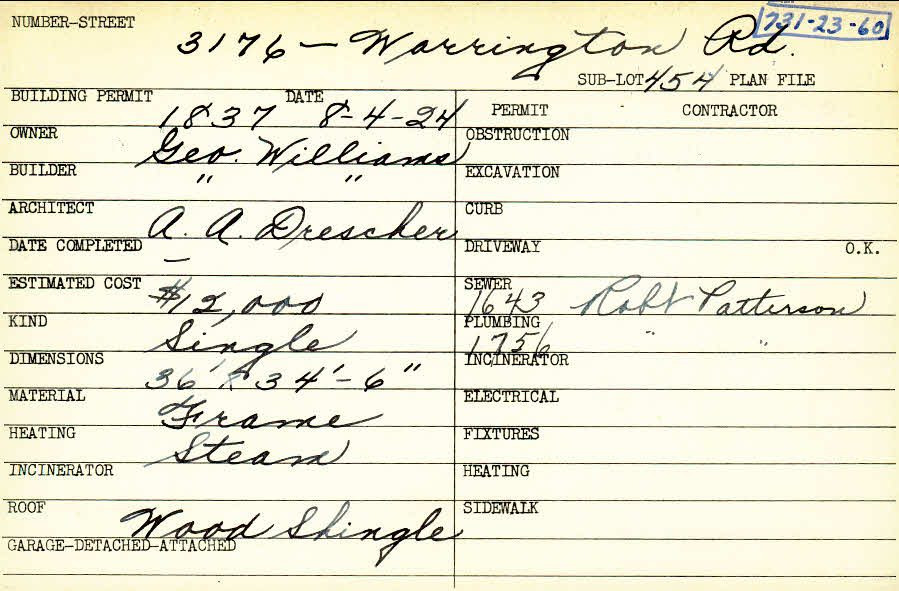 NUMBER-STREET 3176 — Warrington Rd. 731-23-60
SUB-LOT 454 PLAN FILE
BUILDING PERMIT 1837 DATE 8-4-24
PERMIT CONTRACTOR
OWNER Geo. Williams
OBSTRUCTION
BUILDER " "
EXCAVATION
ARCHITECT A. A. Drescher
CURB
DATE COMPLETED —
DRIVEWAY O.K.
ESTIMATED COST $12,000
SEWER 1643 Robt Patterson
KIND Single
PLUMBING 1756 " "
DIMENSIONS 36' x 34'-6"
INCINERATOR
MATERIAL Frame
ELECTRICAL
HEATING Steam
FIXTURES
INCINERATOR
HEATING
ROOF Wood Shingle
SIDEWALK
GARAGE-DETACHED-ATTACHED